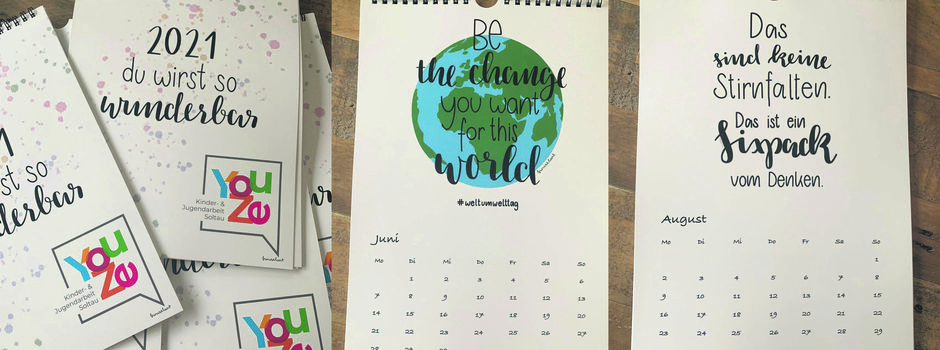 2021
du wirst so
wunderbar
YouZe
Kinder- &
Jugendarbeit
Soltau
1
st so
nderbar
YouZe
Kinder- &
Jugendarbeit
Soltau
You
Be
the change
you want
for this
world
#weltumwelttag
Juni
Mo Di Mi Do Fr Sa So
1 2 3 4 5 6
7 8 9 10 11 12 13
14 15 16 17 18 19 20
21 22 23 24 25 26 27
28 29 30
Das
sind keine
Stirnfalten.
Das ist ein
Sixpack
vom Denken.
August
Mo Di Mi Do Fr Sa So
1
2 3 4 5 6 7 8
9 10 11 12 13 14 15
16 17 18 19 20 21 22
23 24 25 26 27 28 29